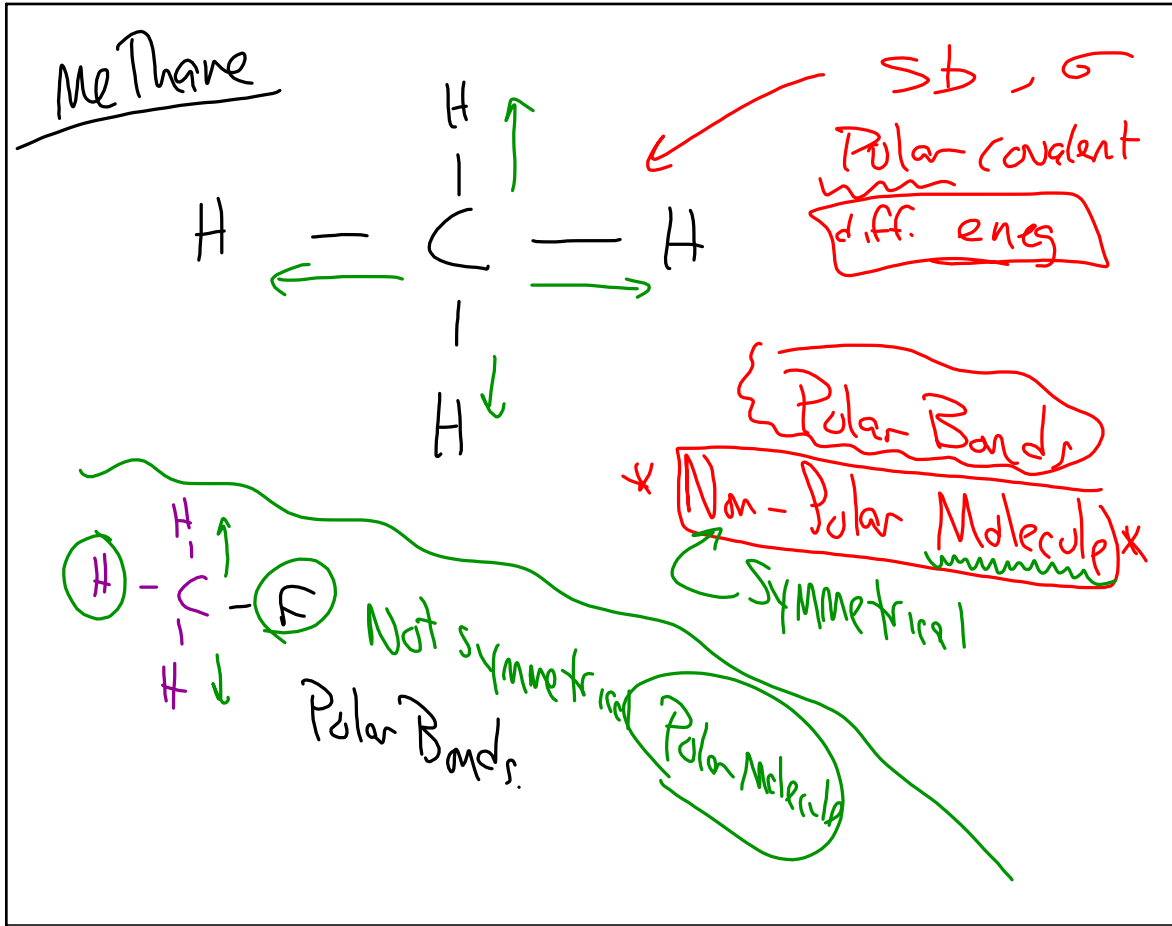 Methane
H
H — C — H
H
Sb, σ
Polar covalent
diff. eneg
Polar Bonds
* Non-Polar Molecule *
Symmetrical
H
H - C - F
H
Not symmetrical
Polar Bonds.
Polar Molecule